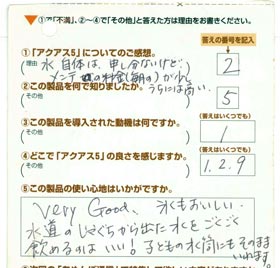 ①で「不満」、②〜④で「その他」と答えた方は理由をお書きください。
答えの番号を記入
①「アクアス5」についてのご感想。
(理由 水自体は、申し分ないけど、
メンテの料金(毎月)が少し
うちには高い。)
2
②この製品を何で知りましたか。
(その他 )
5
③この製品を導入された動機は何ですか。
(答えはいくつでも)
(その他 )
1
④どこで「アクアス5」の良さを感じますか。
(答えはいくつでも)
(その他 )
1.2.9
⑤この製品の使い心地はいかがですか。
Very Good、氷もおいしい。
水道のじゃぐちから出た水をごくごく
飲めるのはいい!子どもの水筒にもそのまま
いれます。